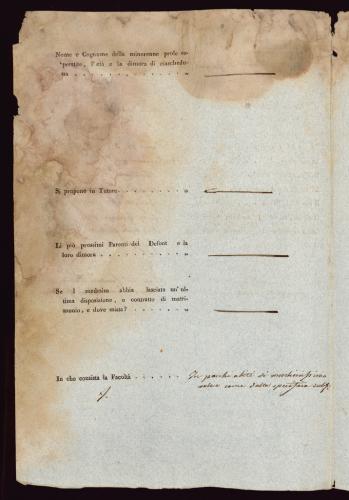 Nome e Cognome della minorenne prole su-
perstite, l'età e la dimora di ciaschedu-
na . . . . . . . . . . . . "
Si propone in Tutore . . . . . . . . "
Li più prossimi Parenti del Defont e la
loro dimora . . . . . . . . . . "
Se l medesimo abbia lasciato un'ul-
tima disposizione, o contratto di matri-
monio, e dove siasi? . . . . . . . "
In che consista la Facoltà . . . . . . In pochi abiti di
come dalla